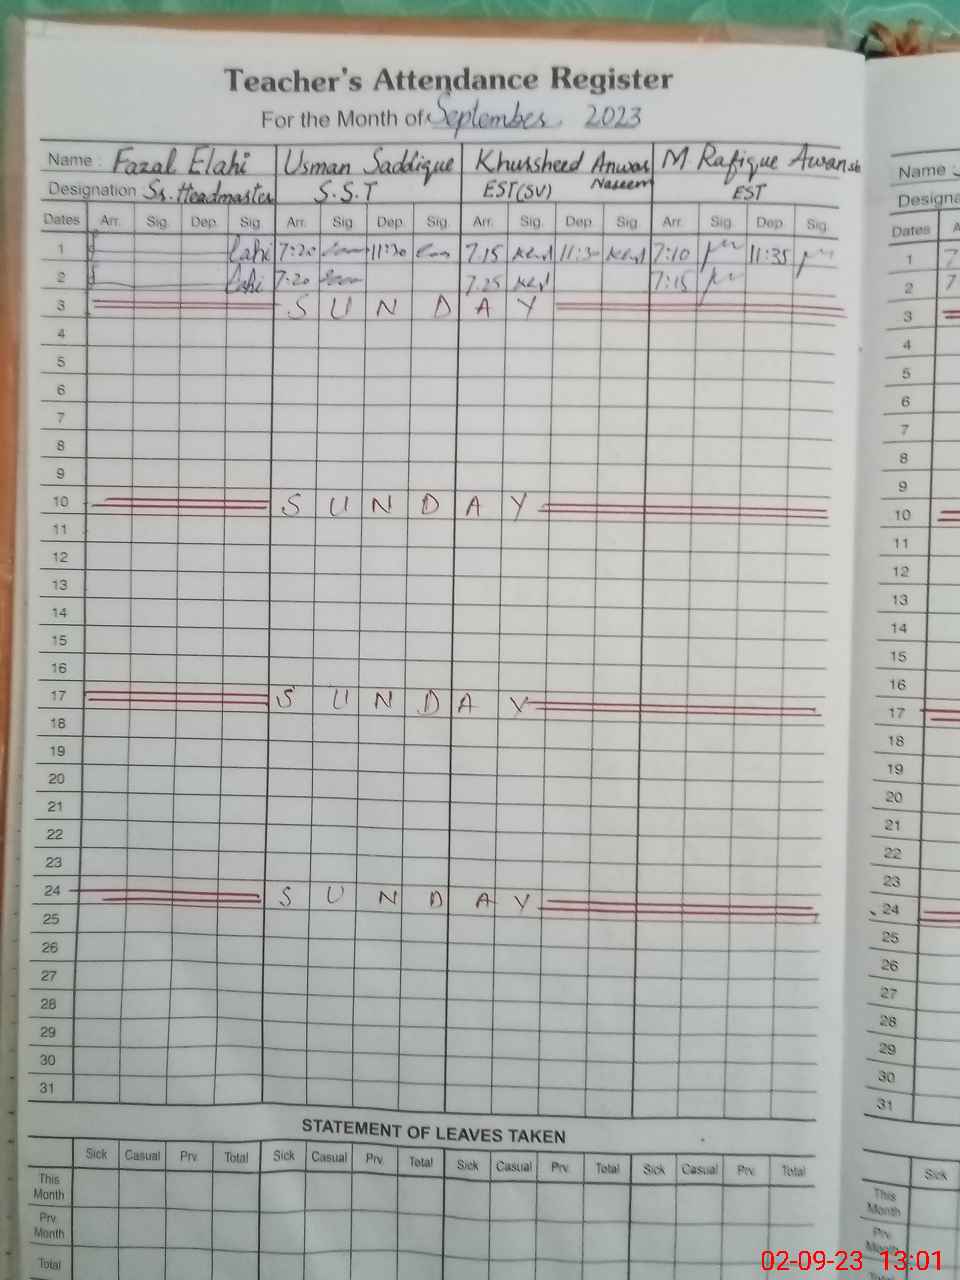 Teacher's Attendance Register
For the Month of September 2023
Name : Fazal Elahi Usman Saddique Khursheed Anwar Naseem M Rafique Awan
Designation Sr. Headmaster S.S.T EST(SV) EST
Dates Arr. Sig. Dep. Sig. Arr. Sig. Dep. Sig. Arr. Sig. Dep. Sig. Arr. Sig. Dep. Sig.
1 7:20 11:30 7.15 11:30 7:10 11:35
2 7:20 7.25 7:15
3 S U N D A Y
4
5
6
7
8
9
10 S U N D A Y
11
12
13
14
15
16
17 S U N D A Y
18
19
20
21
22
23
24 S U N D A Y
25
26
27
28
29
30
31
STATEMENT OF LEAVES TAKEN
Sick Casual Prv. Total Sick Casual Prv. Total Sick Casual Prv. Total Sick Casual Prv. Total
This Month
Prv. Month
Total
Name
Designa
Dates A
1 7
2 7
3
4
5
6
7
8
9
10
11
12
13
14
15
16
17
18
19
20
21
22
23
24
25
26
27
28
29
30
31
Sick
This Month
Prv. Month
02-09-23 13:01